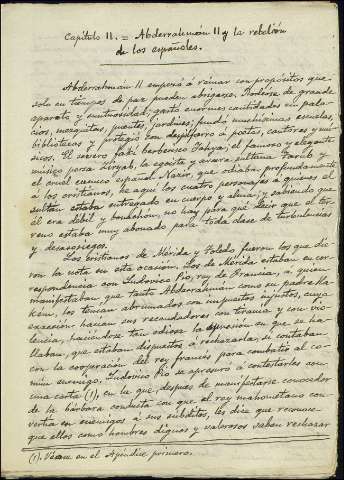 Capítulo II. = Abderrahmán II y la rebelión
de los españoles.
Abderrahmán II empezó á reinar con propósitos que
solo en tiempos de paz pueden abrigarse. Rodeose de grande
aparato y suntuosidad; gastó enormes cantidades en pala-
cios, mezquitas, puentes, jardines; fundó muchísimas escuelas,
bibliotecas y protegió con despilfarro á poetas, cantores y mú-
sicos. El severo faki berberisco Yahya; el famoso y elegante
músico persa Ziryab, la egoista y avara sultana Tarub y
el cruel eunuco español Nazar, que odiaba profundamente
á los cristianos, he aquí los cuatro personajes á quienes el
sultán estaba entregado en cuerpo y alma; y sabiendo que
él era debil y bonachon, no hay para qué decir que el ter-
reno estaba muy abonado para toda clase de turbulencias
y desasosiegos.
Los cristianos de Mérida y Toledo fueron los que die-
ron la nota en esta ocasión. Los de Mérida estaban en cor-
respondencia con Ludovico Pio, rey de Francia, á quien
manifestaban, que tanto Abderrahman como su padre Ha-
kem, los tenían abrumados con impuestos injustos, cuya
exacción hacían sus recaudadores con tiranía y con vio-
lencia, haciéndose tan odiosa la opresión en que se ha-
llaban, que estaban dispuestos á rechazarla, si contaban
con la cooperación del rey francés para combatir al co-
mún enemigo. Ludovico Pio se apresuró á contestarles con
una carta (1), en la que, despues de manifestarse conocedor
de la bárbara conducta con que el rey mahometano con-
vertía en enemigos á sus subditos, les dice que reconoce
que ellos como hombres dignos y valerosos saben rechazar
(1). Véase en el Apéndice primero.